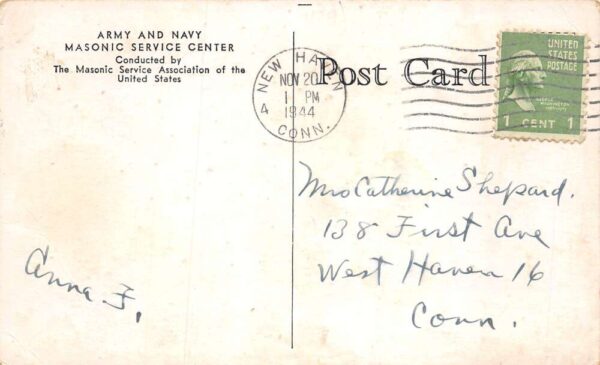 ARMY AND NAVY
MASONIC SERVICE CENTER
Conducted by
The Masonic Service Association of the
United States
Post Card
NEW HAVEN
NOV 20
1 PM
1944
4
CONN.
UNITED
STATES
POSTAGE
1 CENT 1
Mrs Catherine Shepard.
138 First Ave
West Haven 16
Conn.
Anna F.